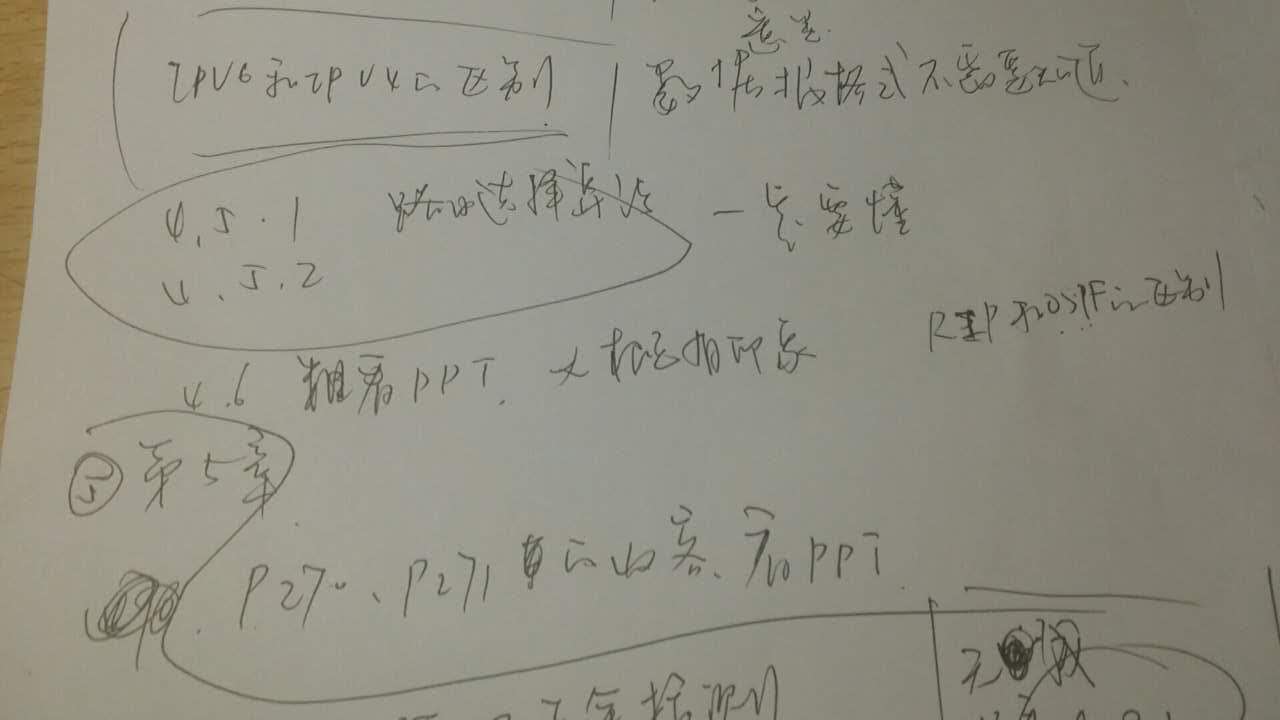 意义.
IPV6和IPV4的区别 数据报格式不需要记.
4.5.1 路由选择算法 一定要懂
4.5.2
RIP和OSPF的区别
4.6 粗看PPT. 大概有印象
⑤ 第5章.
P270、P271页的内容、看PPT.